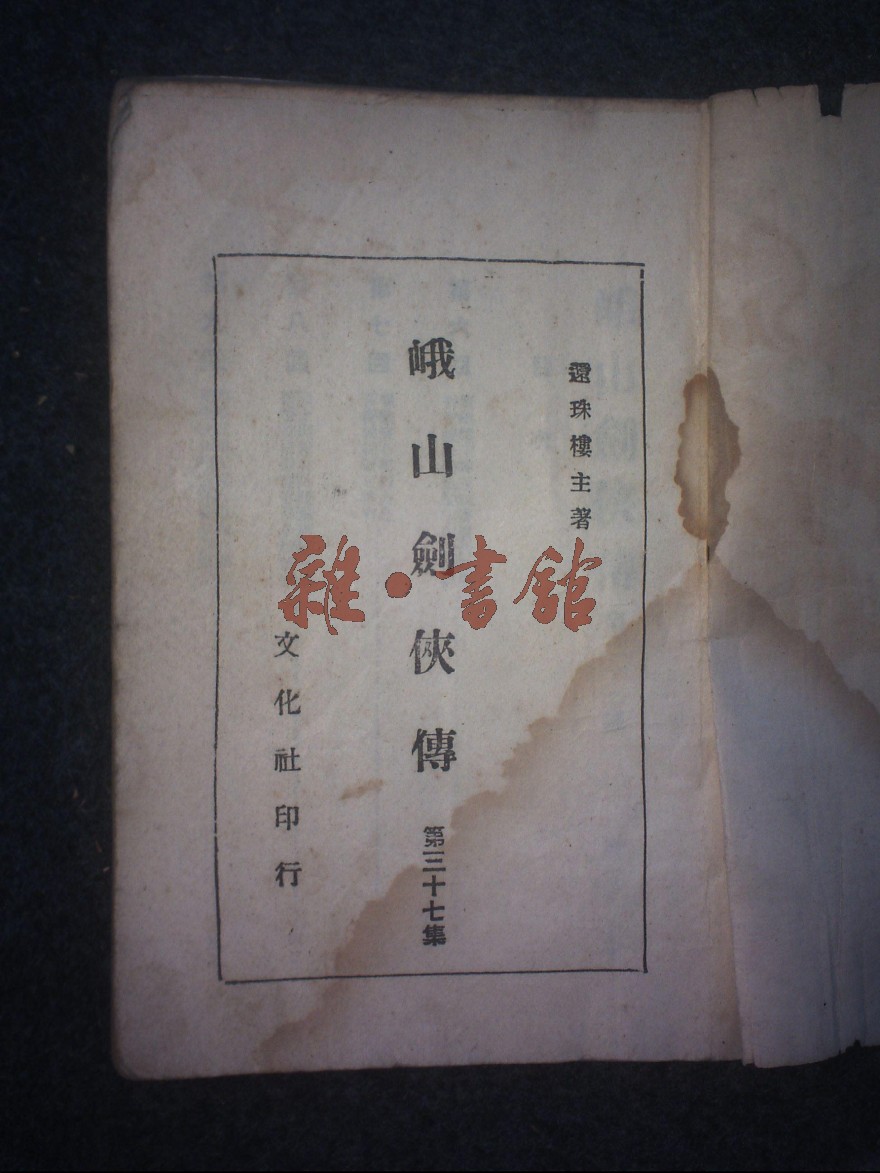 還珠樓主著
峨山劍俠傳
第三十七集
文化社印行
雜·書館